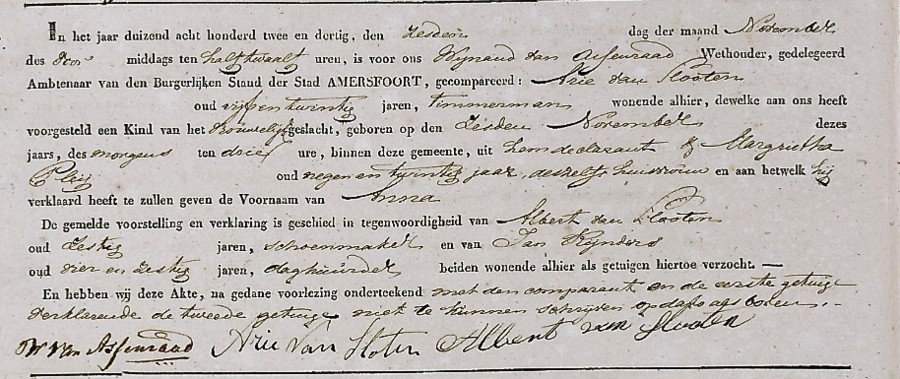 In het jaar duizend acht honderd twee en dertig, den Zesden dag der maand November
des Voor middags ten half twaalf uren, is voor ons Wynand van Assenraad Wethouder, gedelegeerd
Ambtenaar van den Burgerlijken Stand der Stad AMERSFOORT, gecompareerd: Arie van Slooten
oud vijf en twintig jaren, timmerman wonende alhier, dewelke aan ons heeft
voorgesteld een Kind van het vrouwelijk geslacht, geboren op den Zesden November dezes
jaars, des morgens ten drie ure, binnen deze gemeente, uit hem declarant & Margrietha
Pleij oud negen en twintig jaar, deszelfs huisvrouw en aan hetwelk hij
verklaard heeft te zullen geven de Voornaam van Anna
De gemelde voorstelling en verklaring is geschied in tegenwoordigheid van Albert van Slooten
oud Zestig jaren, schoenmaker en van Jan Rynders
oud vier en Zestig jaren, daghuurder beiden wonende alhier als getuigen hiertoe verzocht. —
En hebben wij deze Akte, na gedane voorlezing onderteekend met den comparant en de eerste getuige
verklarende de tweede getuige niet te kunnen schrijven op dato als boven.
W van Assenraad Arie Van Sloten Albert van Slooten